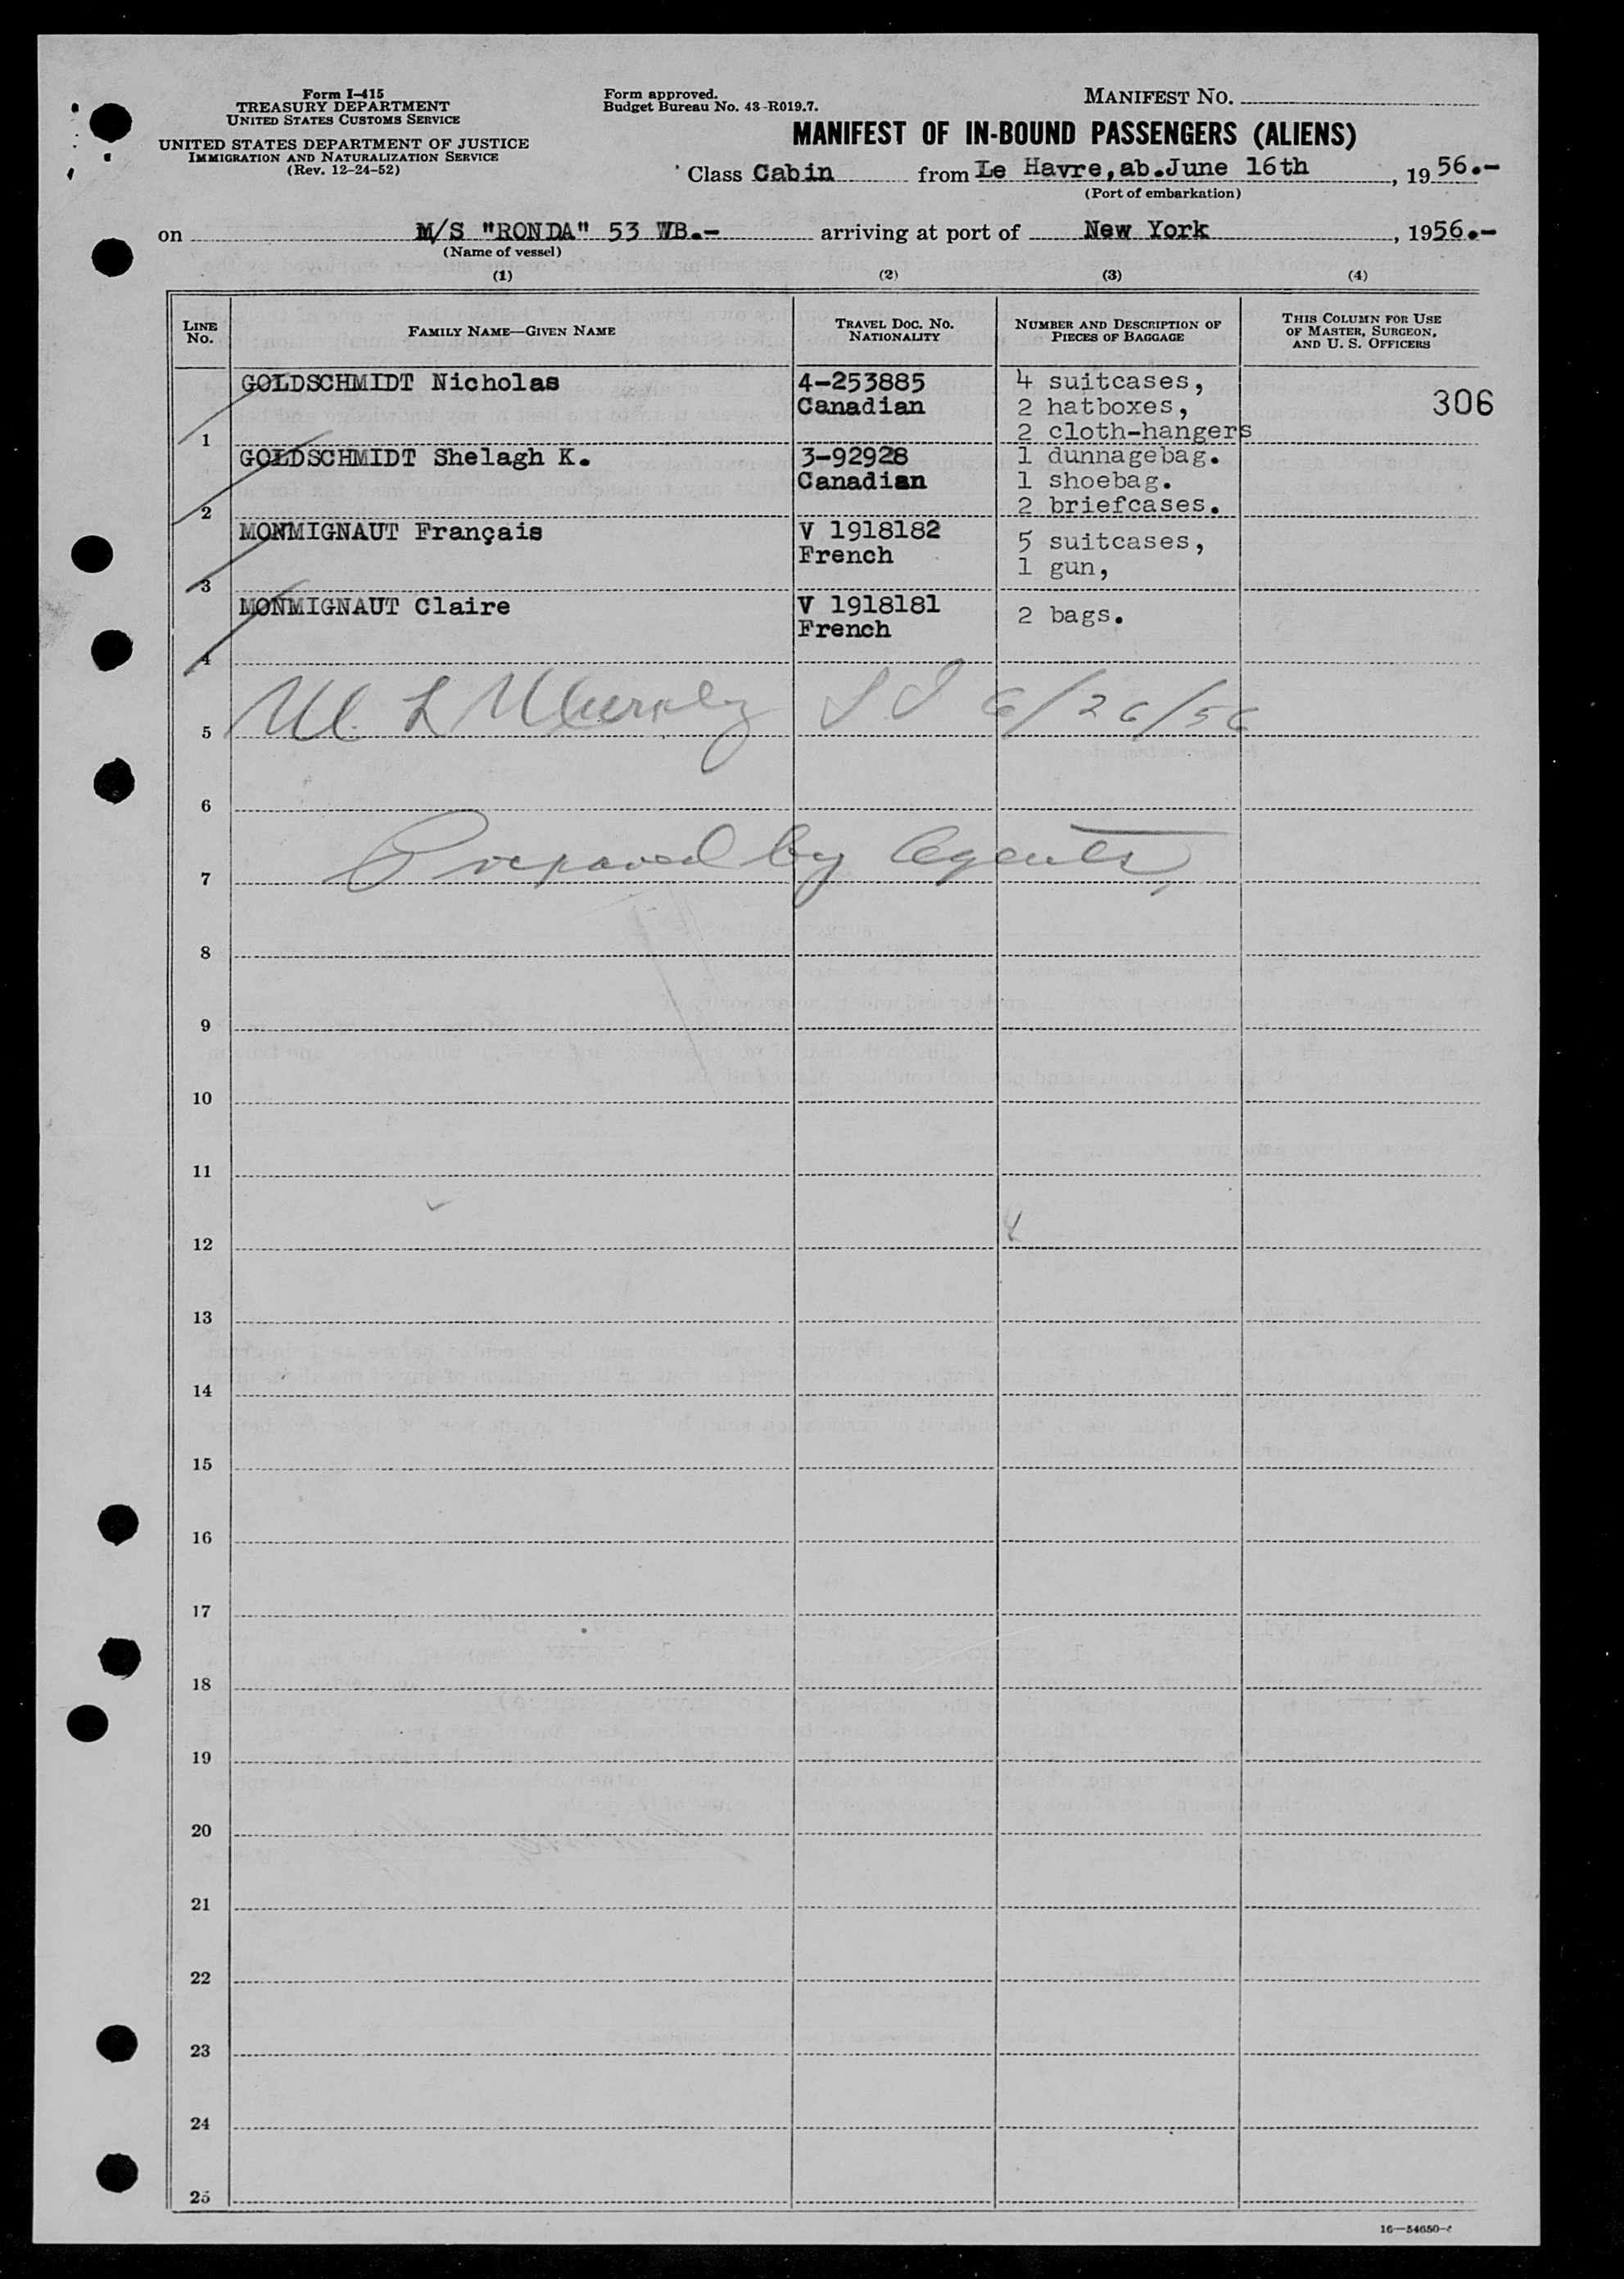 Form I-415
TREASURY DEPARTMENT
UNITED STATES CUSTOMS SERVICE
UNITED STATES DEPARTMENT OF JUSTICE
IMMIGRATION AND NATURALIZATION SERVICE
(Rev. 12-24-52)
Form approved.
Budget Bureau No. 43-R019.7.
MANIFEST NO.
MANIFEST OF IN-BOUND PASSENGERS (ALIENS)
Class Cabin from Le Havre, ab.June 16th, 1956.-
(Port of embarkation)
on M/S "RONDA" 53 WB.- arriving at port of New York, 1956.-
(Name of vessel)
(1) (2) (3) (4)
LINE No. FAMILY NAME—GIVEN NAME TRAVEL DOC. NO. NATIONALITY NUMBER AND DESCRIPTION OF PIECES OF BAGGAGE THIS COLUMN FOR USE OF MASTER, SURGEON, AND U. S. OFFICERS
GOLDSCHMIDT Nicholas 4-253885 4 suitcases,
Canadian 2 hatboxes, 306
1 2 cloth-hangers
GOLDSCHMIDT Shelagh K. 3-92928 1 dunnagebag.
Canadian 1 shoebag.
2 2 briefcases.
MONMIGNAUT Français V 1918182 5 suitcases,
French 1 gun,
3
MONMIGNAUT Claire V 1918181 2 bags.
French
4
L Murphy 6/26/56
5
6
Prepared by Agents
7
8
9
10
11
12
13
14
15
16
17
18
19
20
21
22
23
24
25
16—54650-